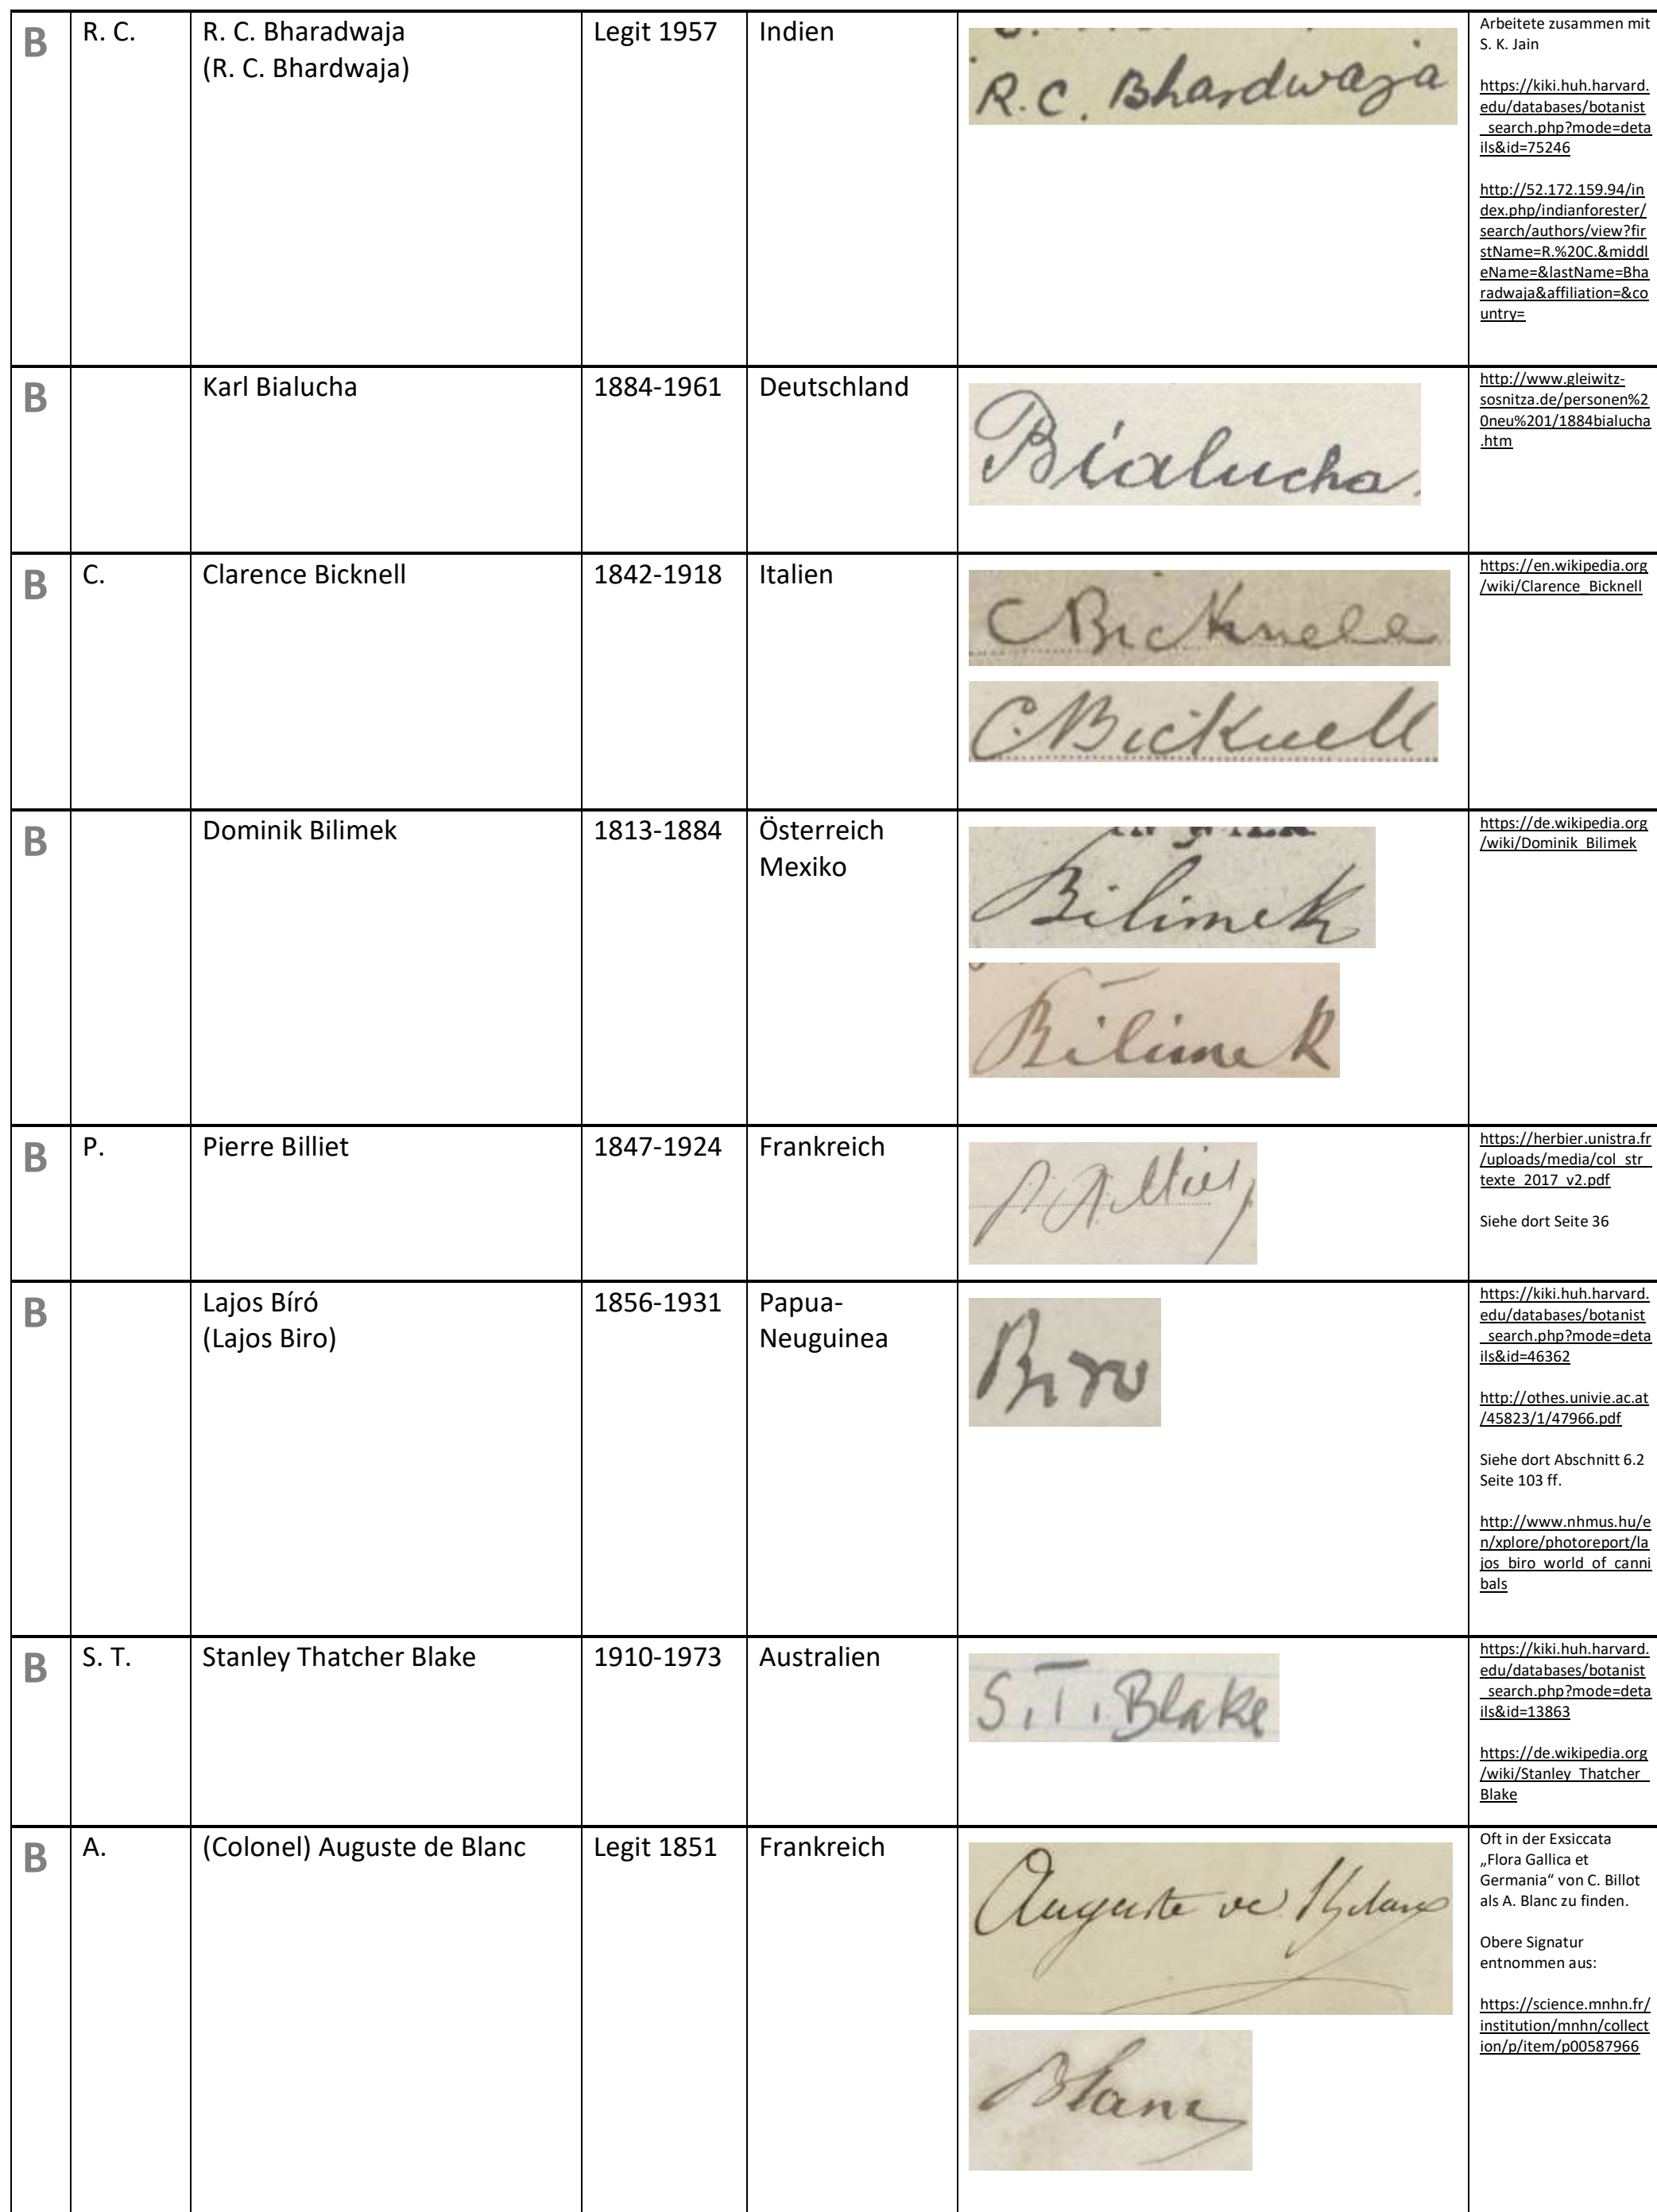 B
R. C.
R. C. Bharadwaja
(R. C. Bhardwaja)
Legit 1957
Indien
R. C. Bhardwaja
Arbeitete zusammen mit
S. K. Jain
https://kiki.huh.harvard.
edu/databases/botanist
_search.php?mode=deta
ils&id=75246
http://52.172.159.94/in
dex.php/indianforester/
search/authors/view?fir
stName=R.%20C.&middl
eName=&lastName=Bha
radwaja&affiliation=&co
untry=
B
Karl Bialucha
1884-1961
Deutschland
Bialucha.
http://www.gleiwitz-
sosnitza.de/personen%2
0neu%201/1884bialucha
.htm
B
C.
Clarence Bicknell
1842-1918
Italien
C Bicknell
C. Bicknell
https://en.wikipedia.org
/wiki/Clarence_Bicknell
B
Dominik Bilimek
1813-1884
Österreich
Mexiko
IN WIEN
Bilimek
Bilimek
https://de.wikipedia.org
/wiki/Dominik_Bilimek
B
P.
Pierre Billiet
1847-1924
Frankreich
P. Billiet
https://herbier.unistra.fr
/uploads/media/col_str_
texte_2017_v2.pdf
Siehe dort Seite 36
B
Lajos Bíró
(Lajos Biro)
1856-1931
Papua-
Neuguinea
Biro
https://kiki.huh.harvard.
edu/databases/botanist
_search.php?mode=deta
ils&id=46362
http://othes.univie.ac.at
/45823/1/47966.pdf
Siehe dort Abschnitt 6.2
Seite 103 ff.
http://www.nhmus.hu/e
n/xplore/photoreport/la
jos_biro_world_of_canni
bals
B
S. T.
Stanley Thatcher Blake
1910-1973
Australien
S. T. Blake
https://kiki.huh.harvard.
edu/databases/botanist
_search.php?mode=deta
ils&id=13863
https://de.wikipedia.org
/wiki/Stanley_Thatcher_
Blake
B
A.
(Colonel) Auguste de Blanc
Legit 1851
Frankreich
Auguste de Blanc
Blanc
Oft in der Exsiccata
„Flora Gallica et
Germania“ von C. Billot
als A. Blanc zu finden.
Obere Signatur
entnommen aus:
https://science.mnhn.fr/
institution/mnhn/collect
ion/p/item/p00587966